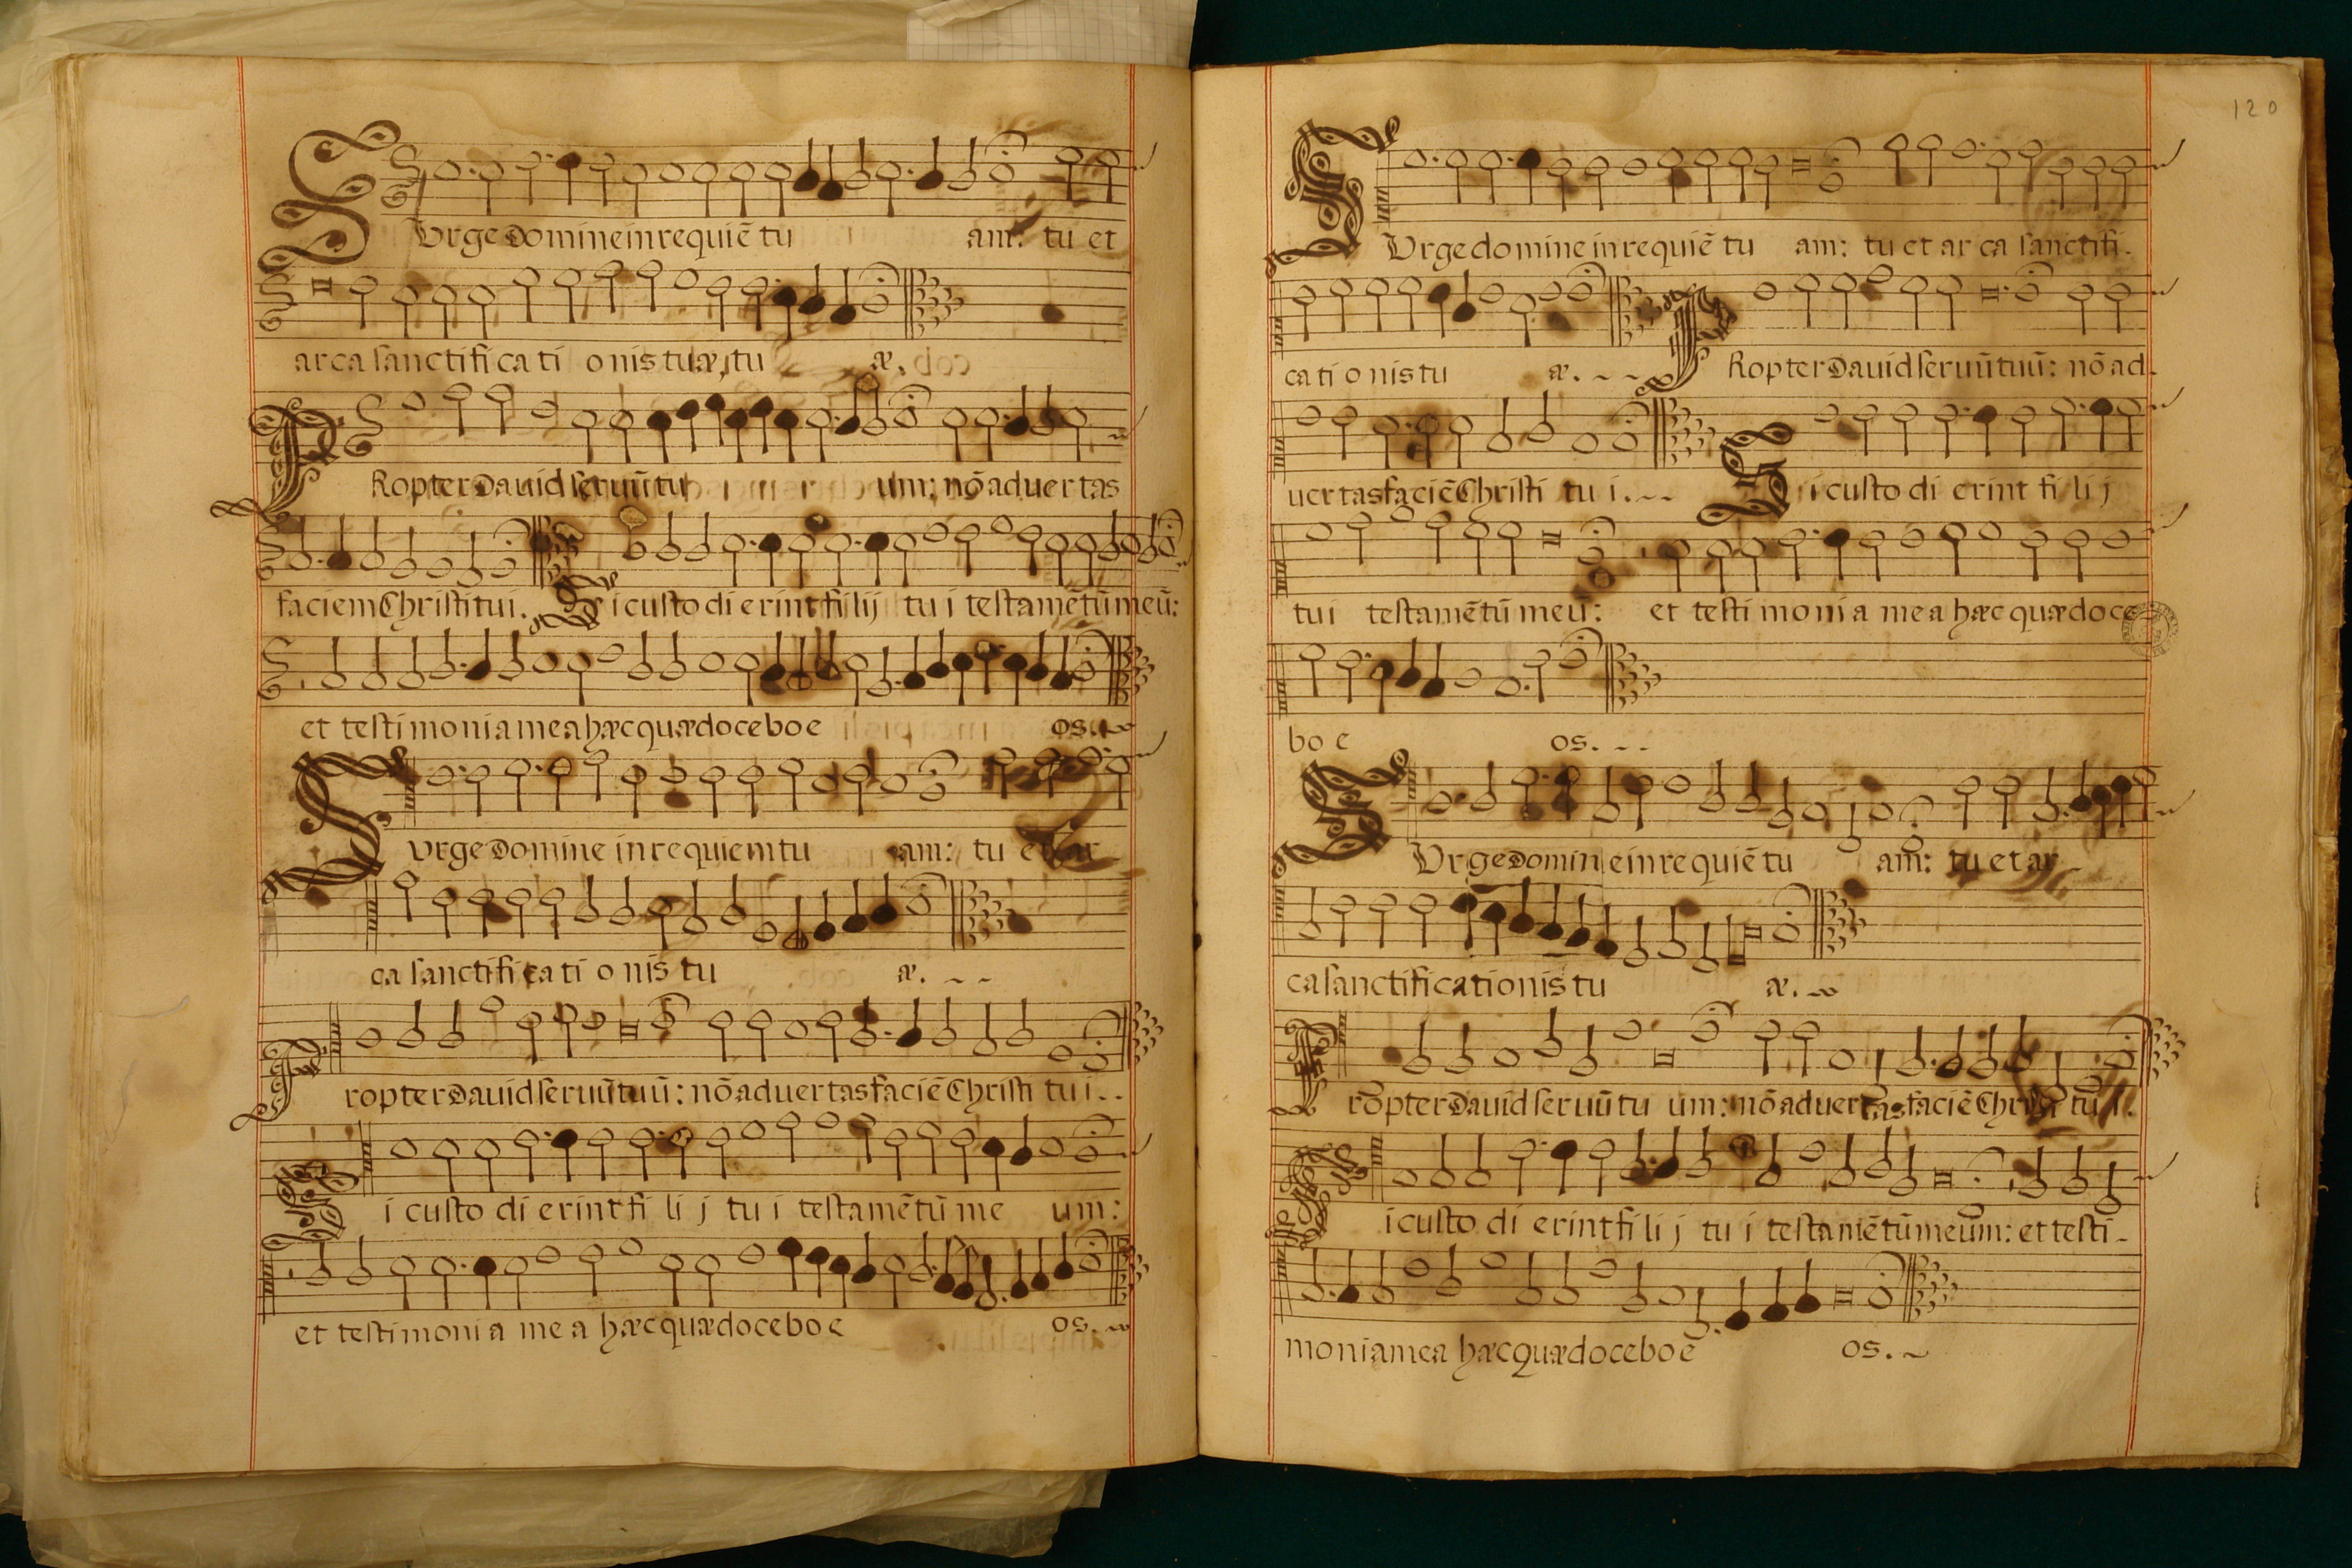 SUrge Domine in requiē tu am: tu et
arca sanctifi ca ti o nis tuæ, tu æ.
PRopter Dauid seruū tu um: nō aduer tas
faciem Christi tui. Si custo di erint fi lij tu i testamētū meū:
et testi moni a mea hæc quædoce bo e os.
Surge Domine in requiem tu am: tu et ar
ca sanctifi ca ti o nis tu æ.
Propter Dauid seruū tuū: nō aduer tas faciē Christi tu i.
Si custo di erint fi li j tu i testamētū me um:
et testi moni a me a hæc quædoce bo e os.
120
SUrge domine in requiē tu am: tu et ar ca sanctifi.
ca ti o nis tu æ. PRopter Dauid seruū tuū: nō ad.
uer tas faciē Christi tu i. Si custo di erint fi li j
tu i testamētū meū: et testi moni a me a hæc quædoce
bo e os.
SUrge domin e in requiē tu am: tu et ar
ca sanctificationis tu æ.
Propter Dauid seruū tu um: nō aduer tas faciē Chr tu i.
Si custo di erint fi li j tu i testamētū meum: et testi-
moniamea hæc Quædoceboe os.